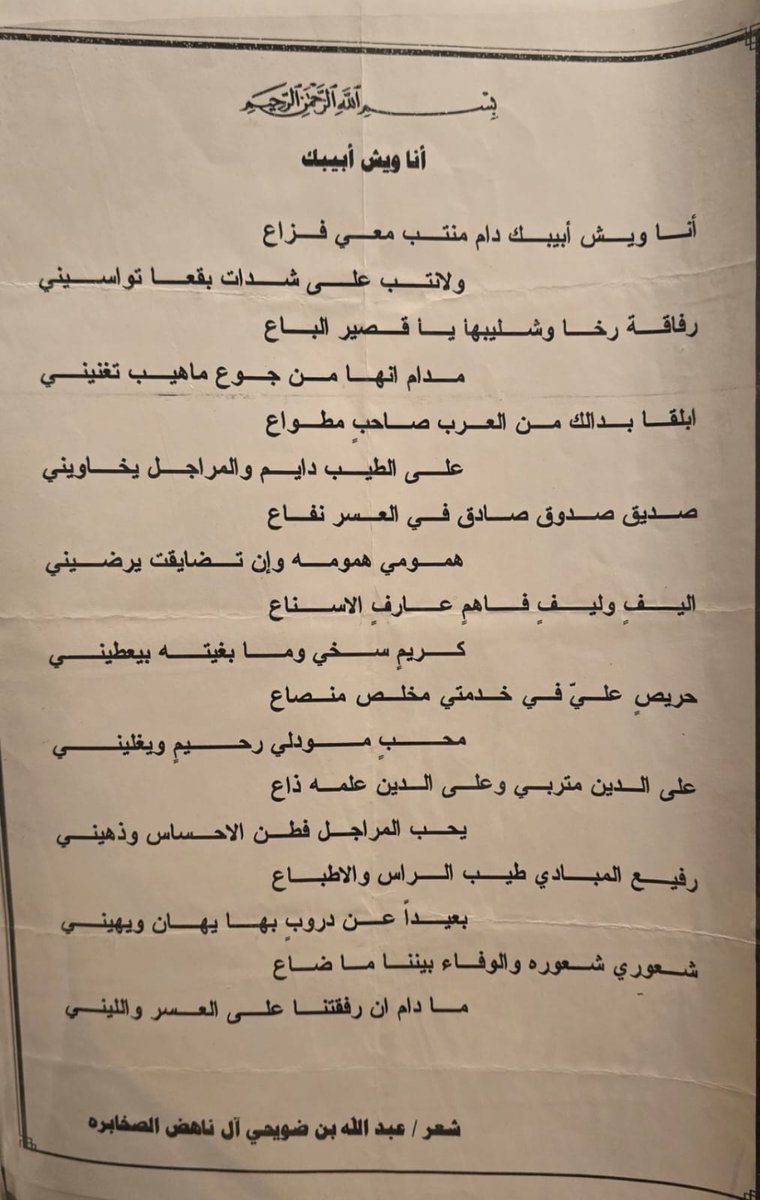 بِسْمِ اللَّهِ الرَّحْمَٰنِ الرَّحِيمِ
أنا ويش أبيبك
أنا ويش أبيبك دام منتب معي فزاع
ولانتب على شدات بقعا تواسيني
رفاقة رخا وشليبها يا قصير الباع
مدام انها من جوع ماهيب تغنيني
ابلقا بدالك من العرب صاحبٍ مطواع
على الطيب دايم والمراجل يخاويني
صديق صدوق صادق في العسر نفاع
همومي همومه وإن تضايقت يرضيني
اليفٍ وليفٍ فاهمٍ عارفٍ الاسناع
كريمٍ سخي وما بغيته بيعطيني
حريصٍ عليّ في خدمتي مخلص منصاع
محبٍ مودلي رحيمٍ ويغليني
على الدين متربي وعلى الدين علمه ذاع
يحب المراجل فطن الاحساس وذهيني
رفيع المبادي طيب الراس والاطباع
بعيداً عن دروبٍ بها يهان ويهيني
شعوري شعوره والوفاء بيننا ما ضاع
ما دام ان رفقتنا على العسر والليني
شعر / عبد الله بن ضويحي آل ناهض الصخابره